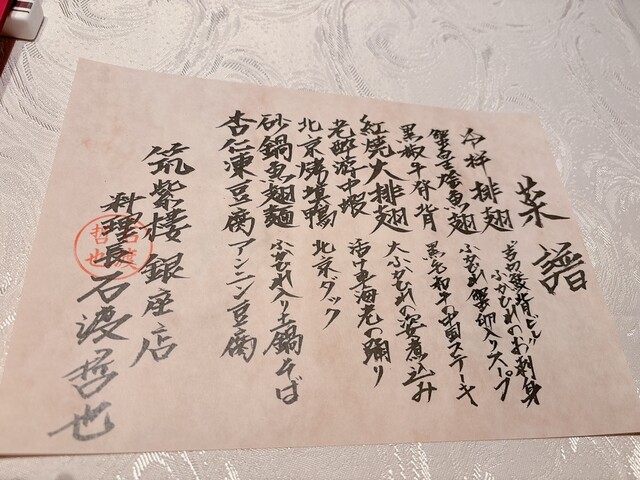 菜譜
冷拌排翅 吉切鮫背ビレ
ふかひれのお刺身
蟹皇燴魚翅 ふかひれ蟹卵入りスープ
黒椒牛脊背 黒毛和牛の中国ステーキ
紅焼大排翅 大ふかひれの姿煮込み
老酔游中蝦 活車海老の踊り
北京烤填鴨 北京ダック
砂鍋魚翅麺 ふかひれ入り土鍋そば
杏仁凍豆腐 アンニン豆腐
筑紫樓 銀座店
料理長 石渡哲也
石渡
哲也